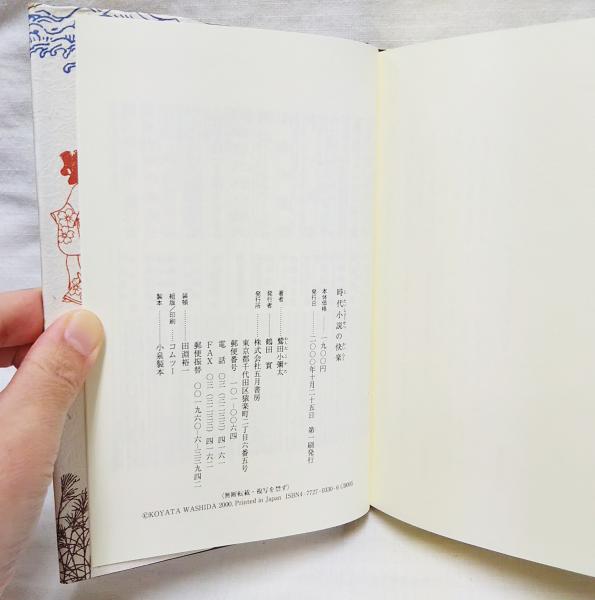 時代小説の快楽
本体価格……一九〇〇円
発行日……二〇〇〇年十月二十五日 第一刷発行
著者……鷲田小彌太
発行者……鶴田 實
発行所……株式会社五月書房
東京都千代田区猿楽町二丁目六番五号
郵便番号 一〇一-〇〇六四
電 話 〇三(三二三三)四一六一
FAX 〇三(三二三三)四一六二
郵便振替 〇〇一九六〇-六-三三九四二
装幀……田淵裕一
組版/印刷……コムツー
製本……小泉製本
〈無断転載・複写を禁ず〉
©KOYATA WASHIDA 2000, Printed in Japan ISBN4-7727-0330-6 C0095